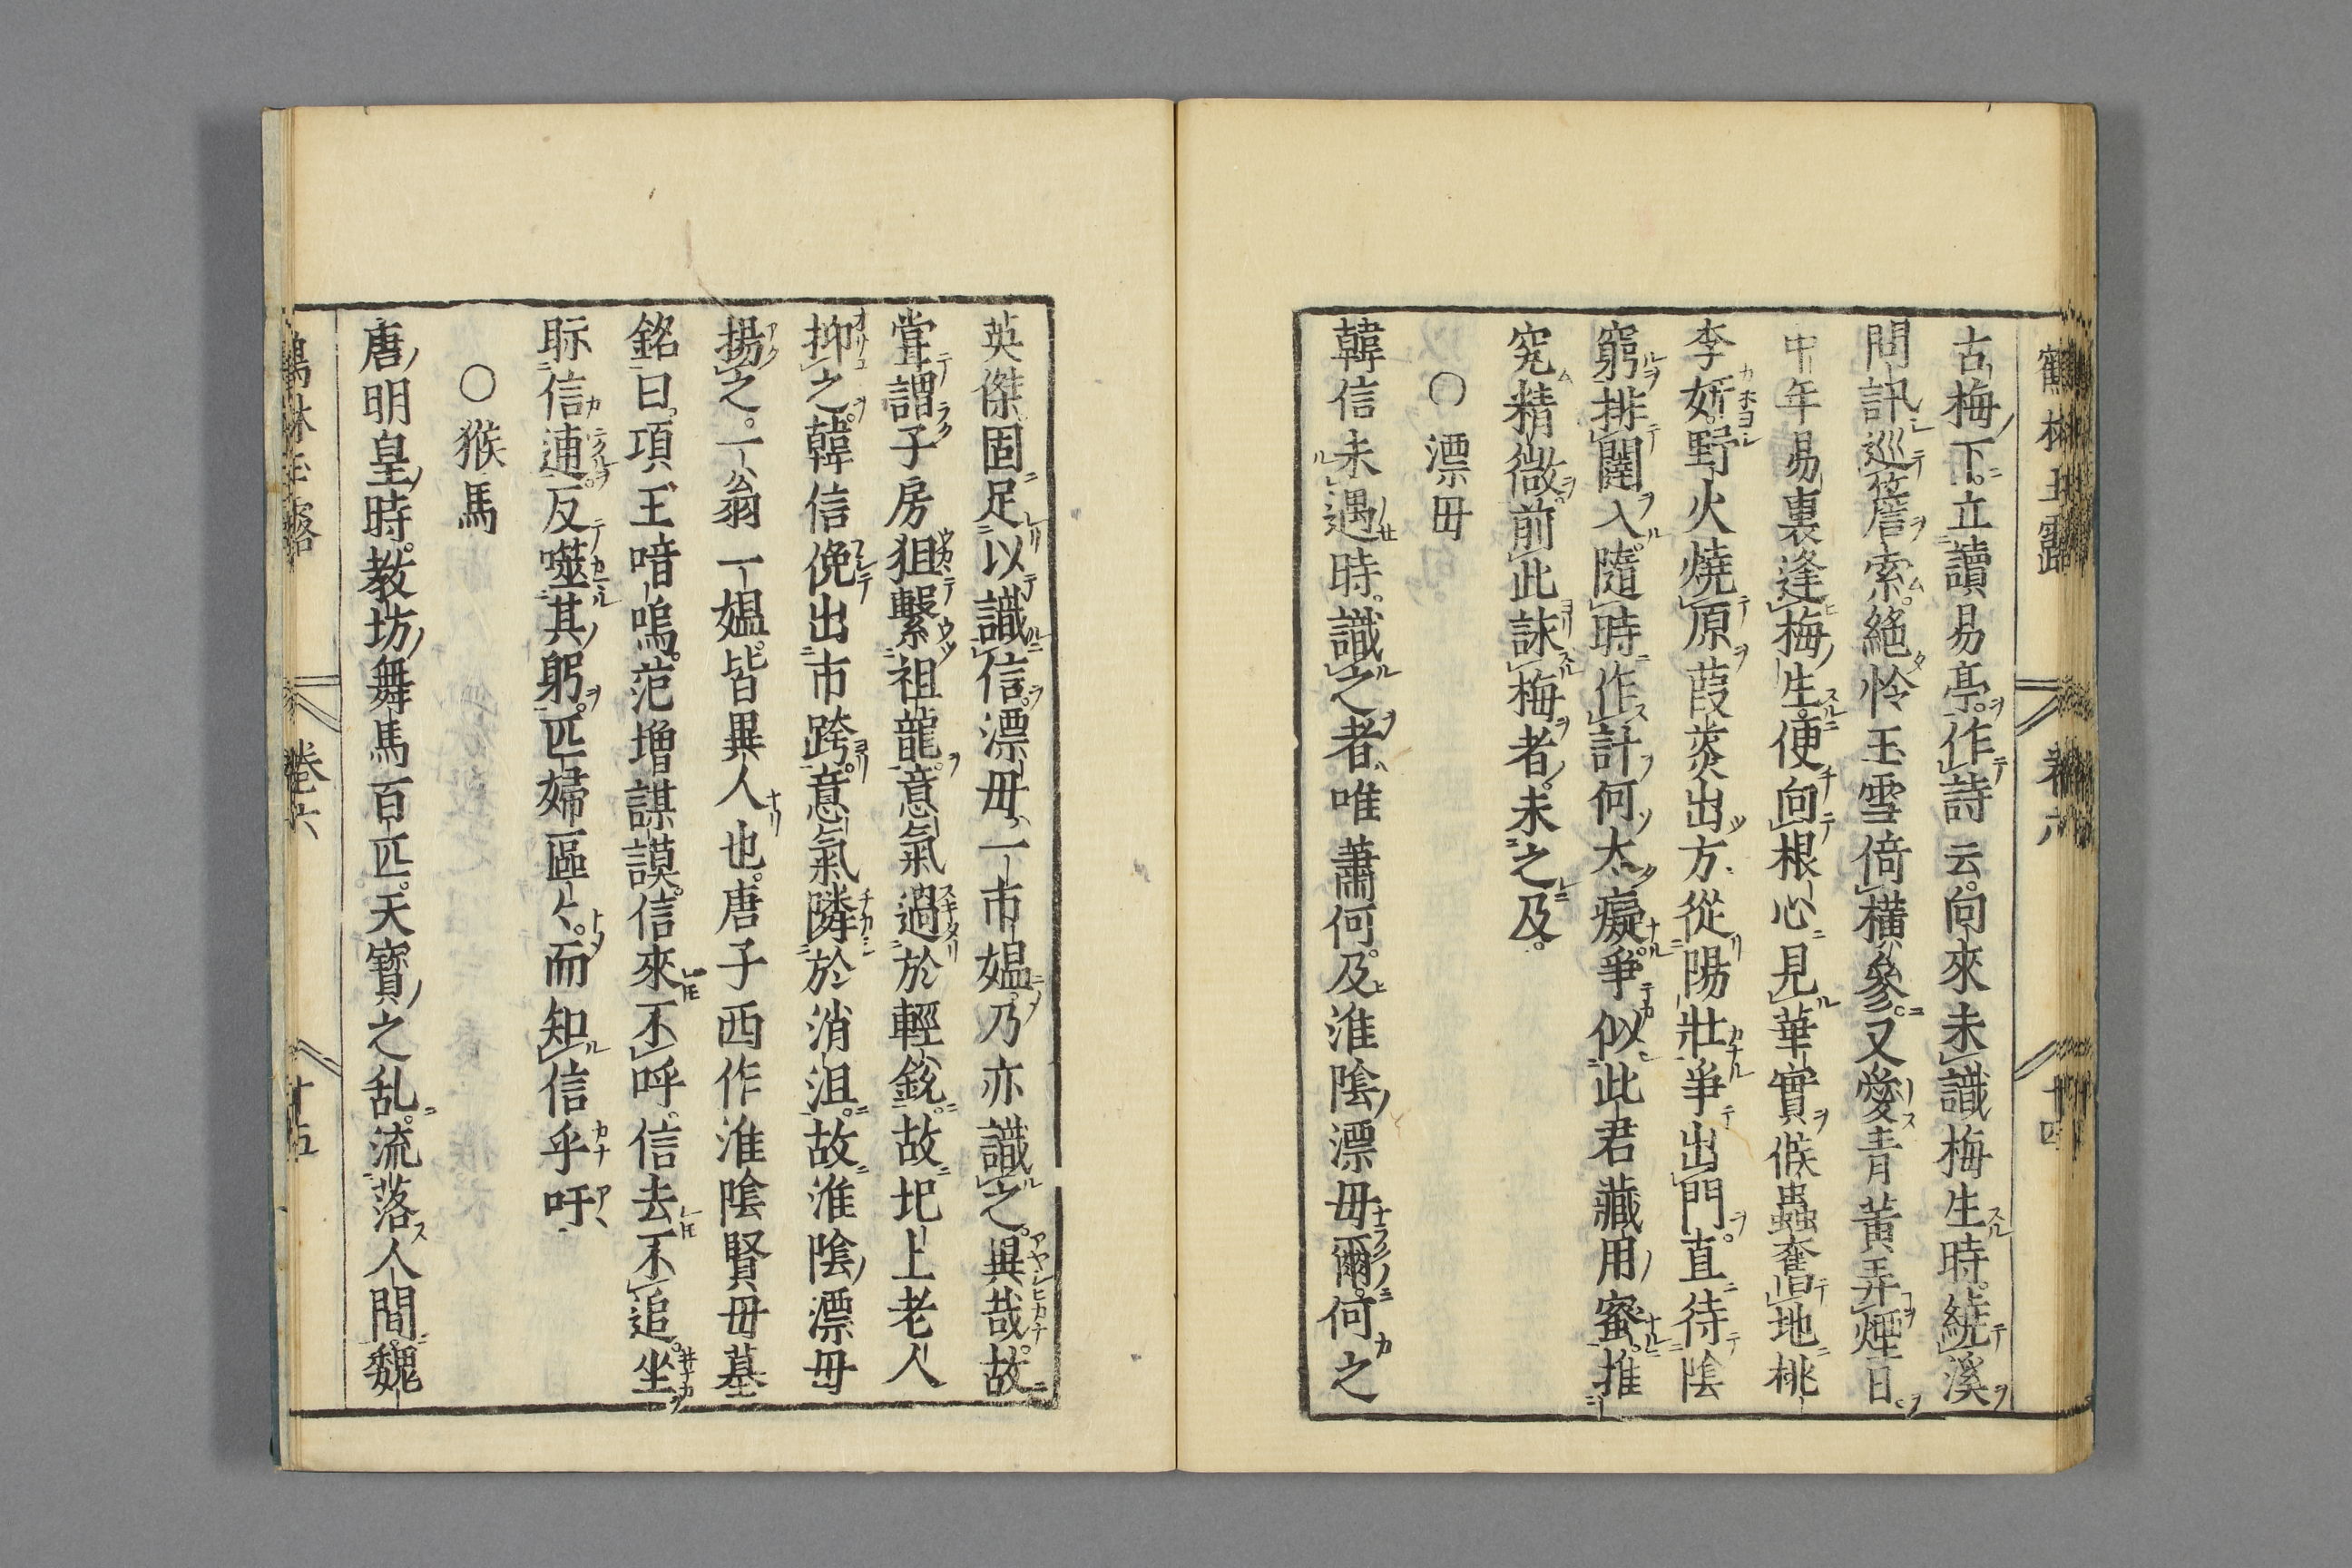 鶴林玉露 卷六 十四
古梅下立讀易亭作詩云向來未識梅生時繞溪
問訊巡簷索絕怜玉雪倚橫參又愛青黃弄煙日
中年易裏逢梅生便向根心見華實候蟲奮地桃
李妍野火燒原葭菼出方從陽壯爭出門直待陰
窮排闥入隨時作計何太癡爭似此君藏用蜜推
究精微前此詠梅者未之及
○漂母
韓信未遇時識之者唯蕭何及淮陰漂毋爾何之
英傑固足以識信漂毋一市媼乃亦識之異哉故
甞謂子房狙擊祖龍意氣過於輕銳故圯上老人
抑之韓信俛出市跨意氣隣於消沮故淮陰漂毋
揚之一翁一媼皆異人也唐子西作淮陰賢毋墓
銘曰項王喑嗚范增謀謨信來不呼信去不追坐
眎信逋反噬其躬匹婦區〻而知信乎吁
○猴馬
唐明皇時教坊舞馬百匹天寶之乱流落人間魏
卷六